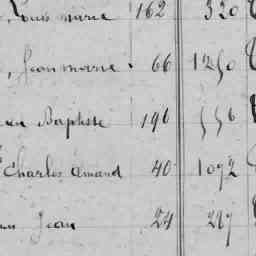 Louis marie 162 320
Jean marie 66 1250
Baptiste 196 556
Charles amand 40 1072
Jean 24 227